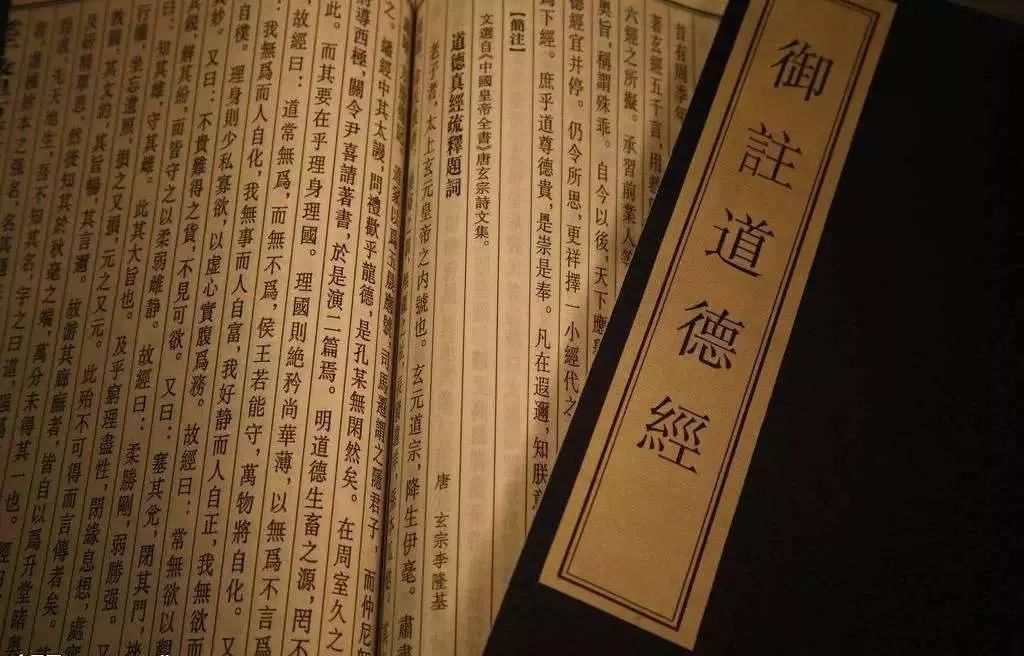 御註道德經
昔有周季年
著玄經五千言，用
六經之所擬。承習前業人等
奧旨，稱謂殊乖。自今以後，天下應
德經宜并停。仍令所思，更祥擇一小經代之
爲下經。庶乎道尊德貴，是崇是奉。凡在遐邇，知朕意
【簡注】
文選自《中國皇帝全書》唐玄宗詩文集。
道德真經疏釋題詞
唐 玄宗李隆基
老子者，太上玄元皇帝之内號也。玄元道宗，降生伊亳。肅
司馬遷謂之隱君子，而仲尼
經中其太謾，問禮歡乎龍德，是孔某無閑然矣。在周室久之
將導西極，關令尹喜請著書，於是演二篇焉。明道德生畜之源，罔不
此。而其要在乎理身理國。理國則絶矜尚華薄，以無爲不言爲
，故經曰：道常無爲，而無不爲，侯王若能守，萬物將自化。又
我無爲而人自化，我無事而人自富，我好静而人自正，我無欲而
自樸。理身則少私寡欲，以虚心實腹爲務。故經曰：常無欲以觀
妙。又曰：不貴難得之貨，不見可欲。又曰：塞其兌，閉其門，挫
鋭，解其紛，而皆守之以柔弱雌静。故經曰：柔勝剛，弱勝强。
知其雄，守其雌。此其大旨也。及乎窮理盡性，閉緣息想，處
行權，坐忘遺照，損之又損，元之又元。此殆不可得而言傳者矣。
教圓，其文約，其旨暢，其言邇。故游其廊廡者，皆自以爲升堂諸奥
及研精覃思，然後知其於秋毫之端，萬分未得其一也。經曰
先天地生，吾不知其名，字之曰道，强爲
妙本之强名